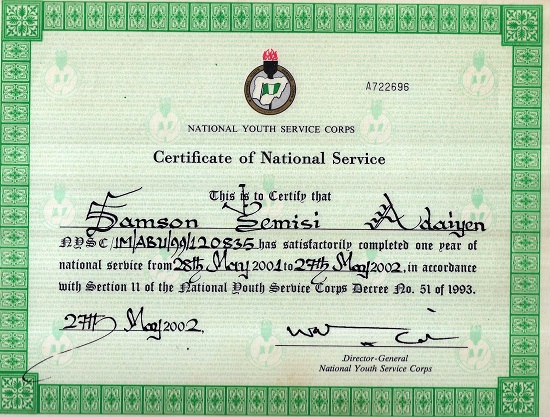 A722696
NATIONAL YOUTH SERVICE CORPS
Certificate of National Service
This is to Certify that
Samson Yemisi Adaiyen
NYSC/IM/ABU/99/120835 has satisfactorily completed one year of
national service from 28th May 2001 to 27th May 2002, in accordance
with Section 11 of the National Youth Service Corps Decree No. 51 of 1993.
27th May 2002.
Director-General
National Youth Service Corps